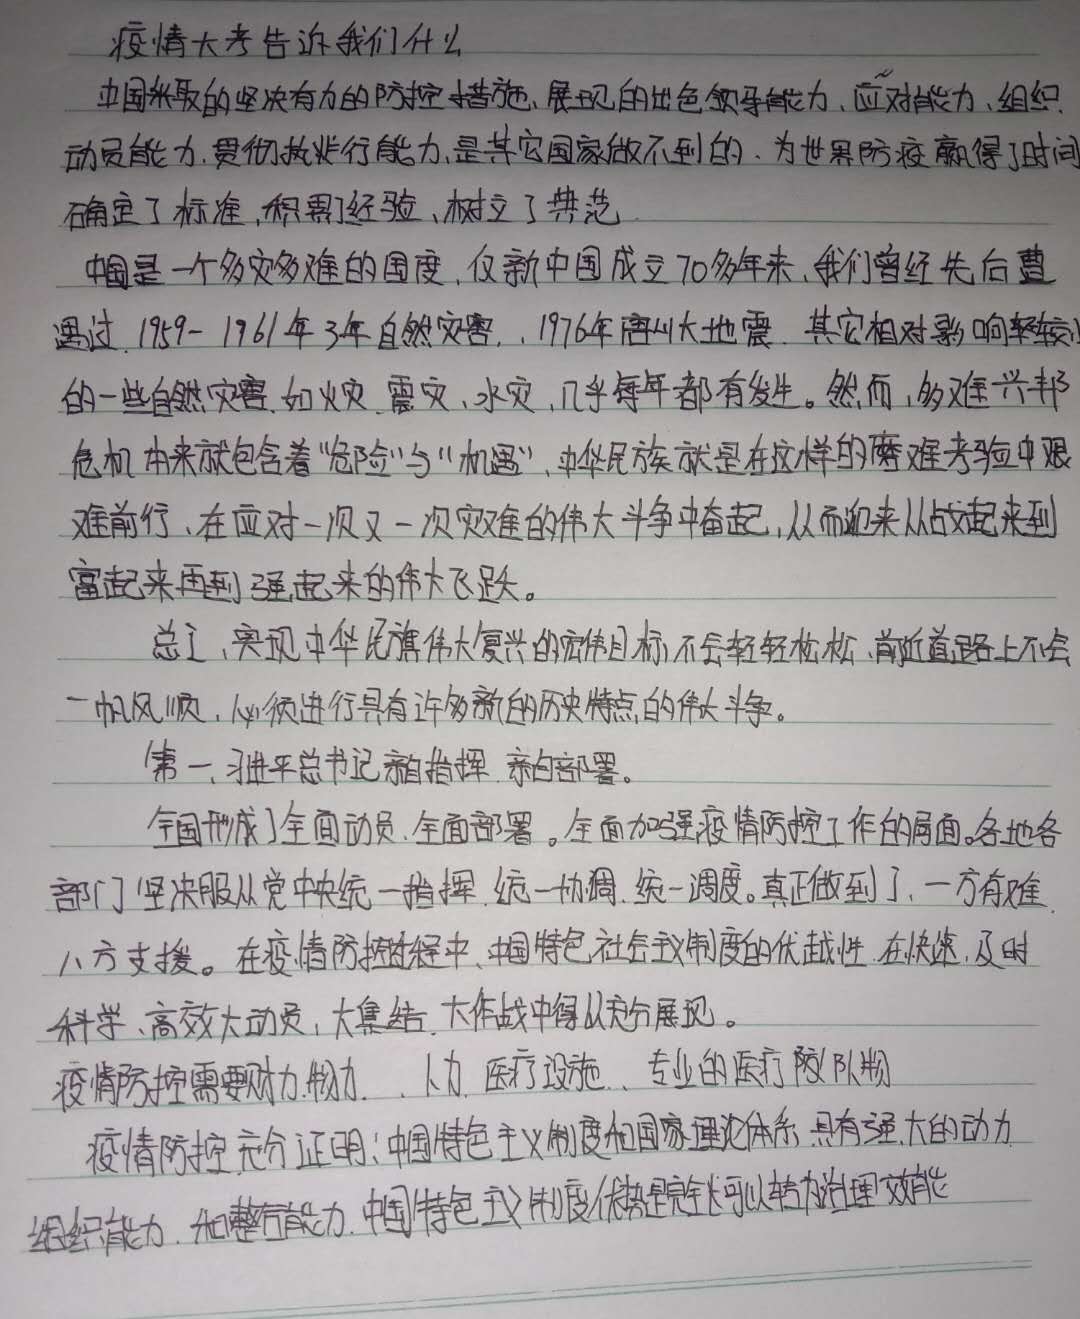 疫情大考告诉我们什么
中国采取的坚决有力的防控措施、展现的出色领导能力、应对能力、组织
动员能力、贯彻执行能力、是其它国家做不到的、为世界防疫赢得了时间
确定了标准、积累了经验、树立了典范
中国是一个多灾多难的国度、仅新中国成立70多年来、我们曾经先后遭
遇过、1959-1961年3年自然灾害、、1976年唐山大地震、其它相对影响较小
的一些自然灾害、如火灾、震灾、水灾、几乎每年都有发生。然而、多难兴邦
危机本来就包含着“危险”与“机遇”、中华民族就是在这样的磨难考验中艰
难前行、在应对一次又一次灾难的伟大斗争中奋起、从而迎来从站起来到
富起来再到强起来的伟大飞跃。
总之、实现中华民族伟大复兴的宏伟目标不会轻轻松松、前进道路上不会
一帆风顺、必须进行具有许多新的历史特点的伟大斗争。
第一、习进平总书记亲自指挥、亲自部署。
全国形成了全面动员、全面部署。全面加强疫情防控工作的局面。各地各
部门坚决服从党中央统一指挥、统一协调、统一调度。真正做到了、一方有难、
八方支援。在疫情防控过程中、中国特色社会主义制度的优越性、在快速、及时
科学、高效大动员、大集结、大作战中得以充分展现。
疫情防控需要财力、物力、、人力、医疗设施、、专业的医疗队物
疫情防控充分证明：中国特色主义制度和国家理论体系、具有强大的动力
组织能力、和整合能力、中国特色主义制度优势是完全可以转为治理效能